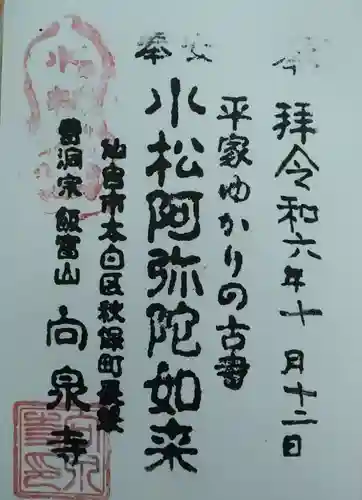 奉拝令和六年十月十二日
平家ゆかりの古寺
奉安
小松阿弥陀如来
仙台市太白区秋保町長袋
曹洞宗飯富山
向泉寺
小松